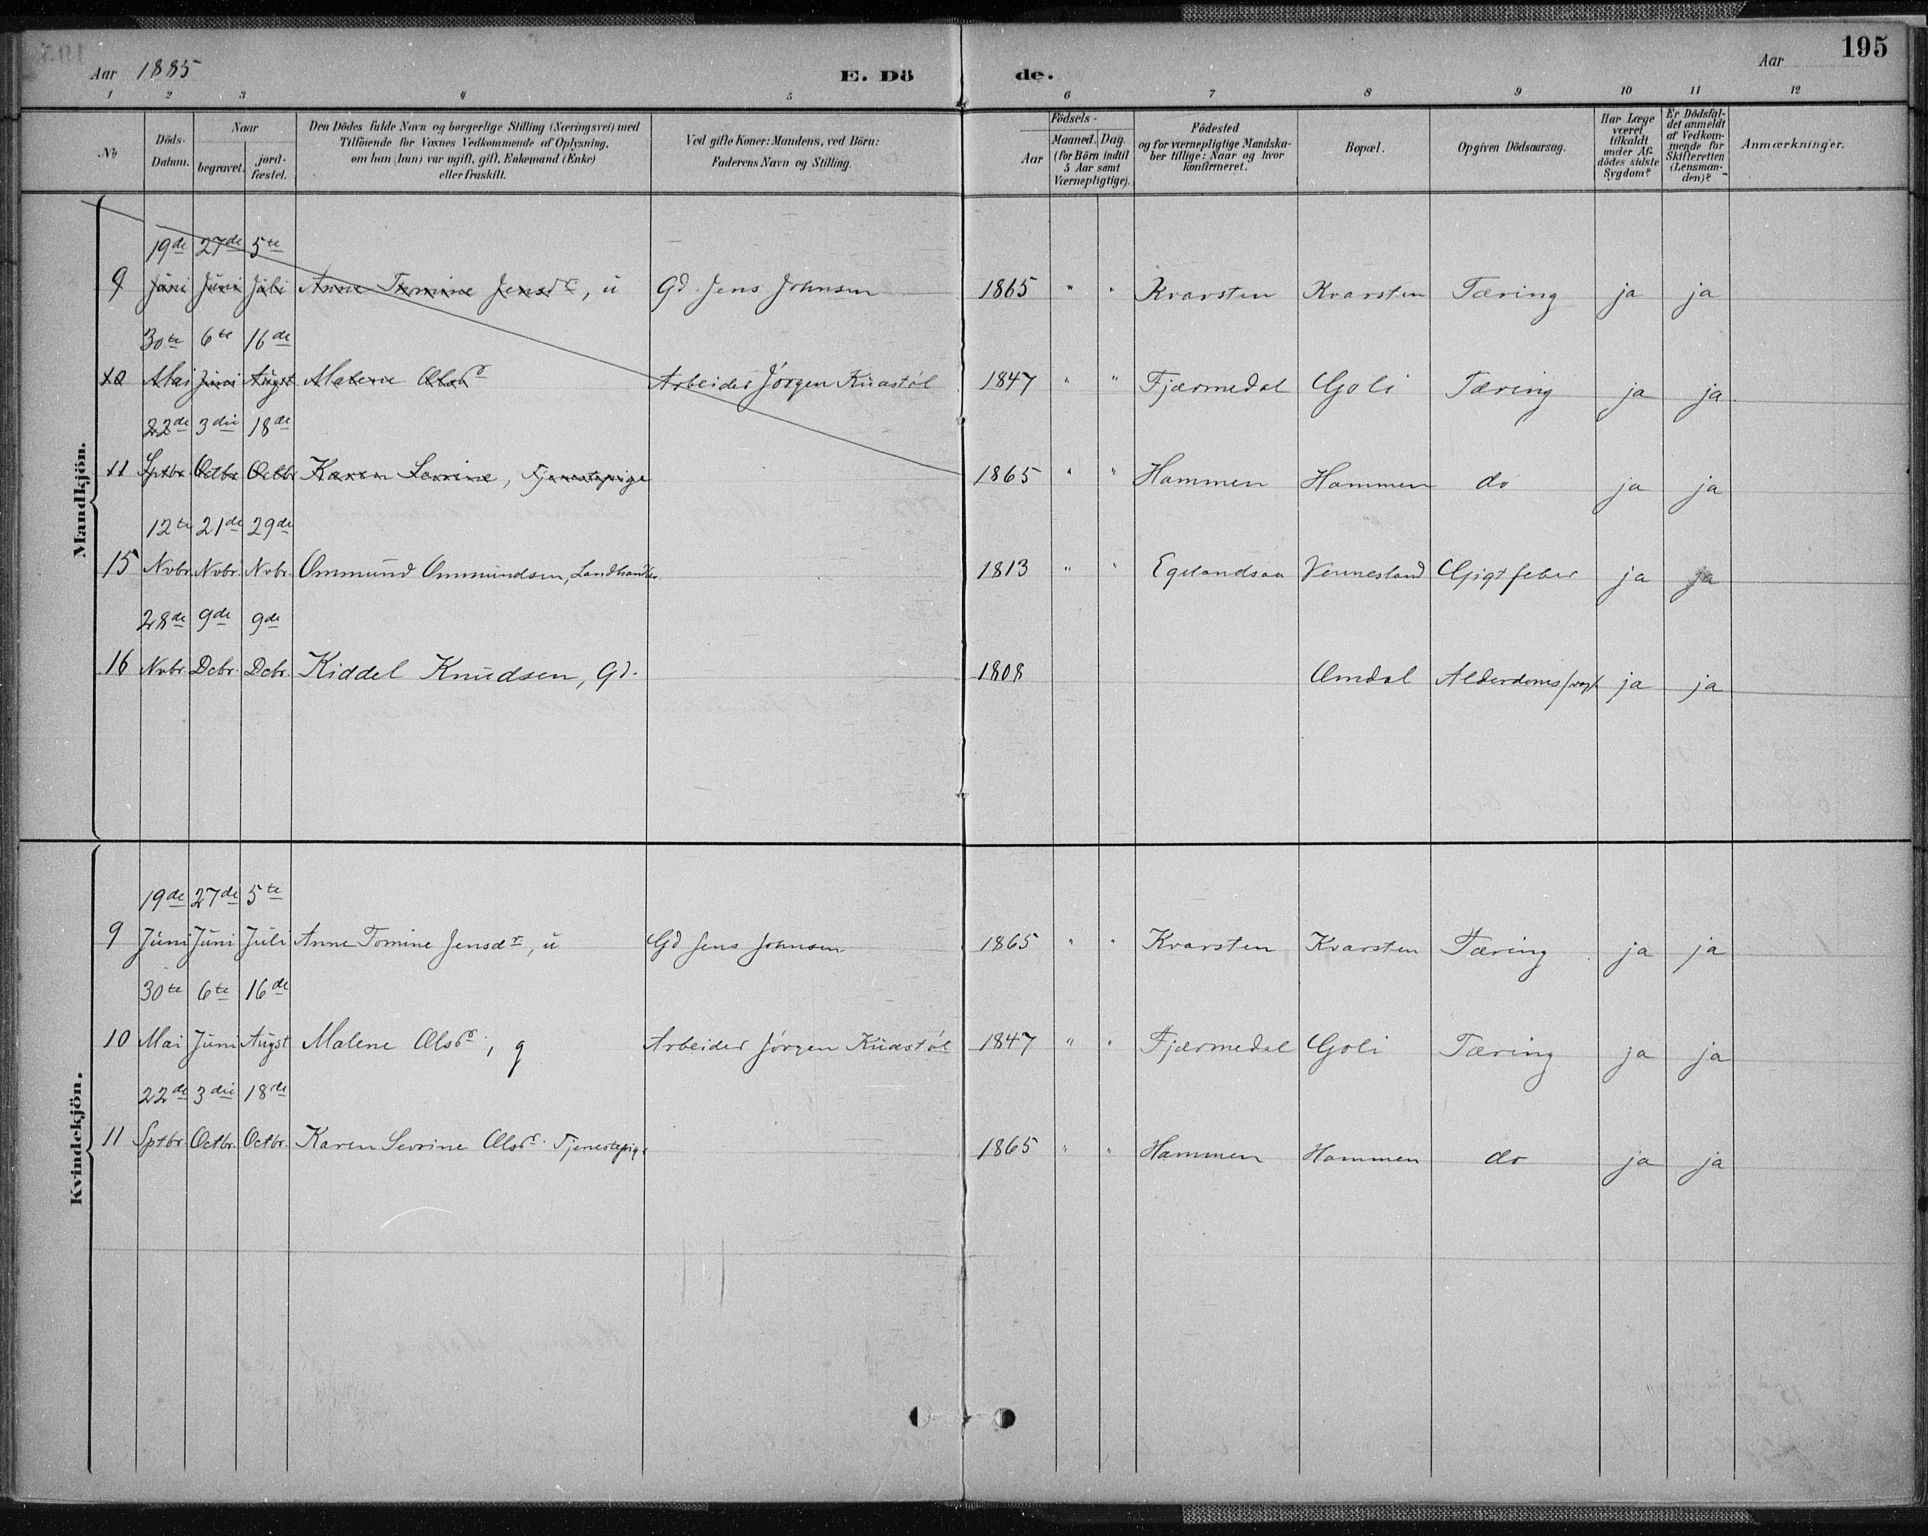 195
Aar 1885 E. Dö de. Aar
1 2 3 4 5 6 7 8 9 10 11 12
No
Döds-Datum.
Naar
begravet.
jord-fæstet.
Den Dödes fulde Navn og borgerlige Stilling (Næringsvei) med
Tilföiende for Voxnes Vedkommende af Oplysning,
om han (hun) var ugift, gift, Enkemand (Enke)
eller fraskilt.
Ved gifte Koner: Mandens, ved Börn:
Faderens Navn og Stilling.
Födsels-
Aar
Maaned. Dag.
(for Börn indtil
5 Aar samt
Værnepligtige).
Födested
og for værnepligtige Mandska-
ber tillige: Naar og hvor
konfirmeret.
Bopæl.
Opgiven Dödsaarsag.
Har Læge
været
tilkaldt
under Af-
dödes sidste
Sygdom?
Er Dödsfal-
det anmeldt
af Vedkom-
mende for
Skifteretten
(Lensman-
den)?
Anmærkninger.
Mandkjön.
19de 27de 5te
9 Juni Juni Juli Anne Tomine Jensdr, u Gd. Jens Johnsen 1865 " " Kvarsten Kvarsten Tæring ja ja
30te 6te 16de
10 Mai Juni Augst Malene Olsdr Arbeider Jörgen Kuastöl 1847 " " Fjærmedal Goli Tæring ja ja.
22de 3die 18de
11 Sptbr Octbr Octbr Karen Sevrine, Fjenestepige 1865 " " Hammen Hammen do ja ja
12te 21de 29de
15 Nvbr. Nvbr. Nvbr. Ommund Ommundsen, Landhandler 1813 " " Egelandsaa Vennesland Gigtfeber ja ja
28de 9de 9de
16 Nvbr. Dcbr. Dcbr. Kiddel Knudsen, Gd. 1808 Omdal ja ja
Kvindekjön.
19de 27de 5te
9 Juni Juni Juli Anne Tomine Jensdr, u Gd Jens Johnsen 1865 " " Kvarsten Kvarsten Tæring ja ja
30te 6te 16de
10 Mai Juni Augst Malene Olsdr, g Arbeider Jörgen Kuastöl 1847 " " Fjærmedal Goli Tæring ja ja
22de 3die 18de
11 Sptbr. Octbr. Octbr. Karen Sevrine Olsdr. Fjenestepige 1865 " " Hammen Hammen do ja ja